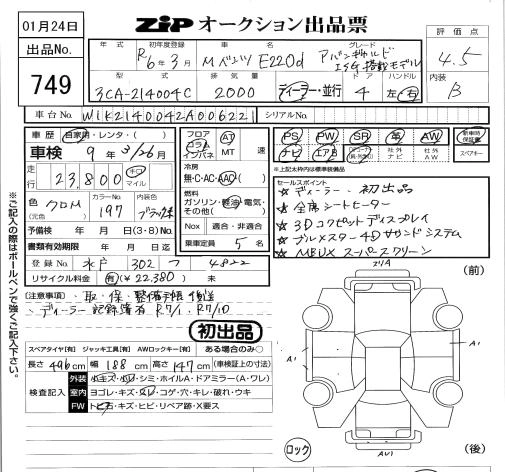 01月24日
ZIP オークション出品票
評価点
4.5
出品No.
749
年式 初年度登録 車名 グレード
R6年3月 Mベンツ E220d アバンギャルド ISG搭載モデル
型式 排気量 ドア ハンドル
3CA-214004C 2000 ディーラー・並行 4 左・右
内装
B
車台No. W1K2140042A00622 シリアルNo.
車歴 自家用・レンタ・( )
車検 9年3/26月
走行 23,800 キロ マイル
色 クロM (元色) カラーNo. 197 内装色 ブラック
予備検 年 月迄 (3・8)No.
書類有効期限 年 月 日迄
登録No. 水戸 302 つ 4822
リサイクル料金 有(¥22,380) 未
フロア コラム インパネ AT MT 速
冷房
無・C・AC・AAC
燃料
ガソリン・軽油・電気・その他( )
Nox 適合・非適合
乗車定員 5名
PS PW SR 革 AW 新車時保証書
ナビ エアB 社外ナビ 社外AW スペアキー
*上記太枠内は標準装備品
セールスポイント
☆ディーラー 初出品
☆全席シートヒーター
☆3Dコクピットディスプレイ
☆ブルメスター4Dサウンドシステム
☆MBUXスーパースクリーン
(注意事項)・取・保・整備手帳後送
・ディーラー記録簿有 R7/1、R7/10
初出品
スペアタイヤ【有】 ジャッキ工具【有】 AWロックキー【有】 ある場合のみ○
長さ 496cm 幅 188cm 高さ 147cm (車検証上の寸法)
検査記入
外装 小キズ・小凹・シミ・ホイルA・ドアミラー(A・ワレ)
室内 ヨゴレ・キズ・スレ・コゲ・穴・キレ・破れ・ウキ
FW トビ石・キズ・ヒビ・リペア跡・X要ス
※ご記入の際はボールペンで強くご記入下さい。
(前)
A1
A1
ロック
(後)